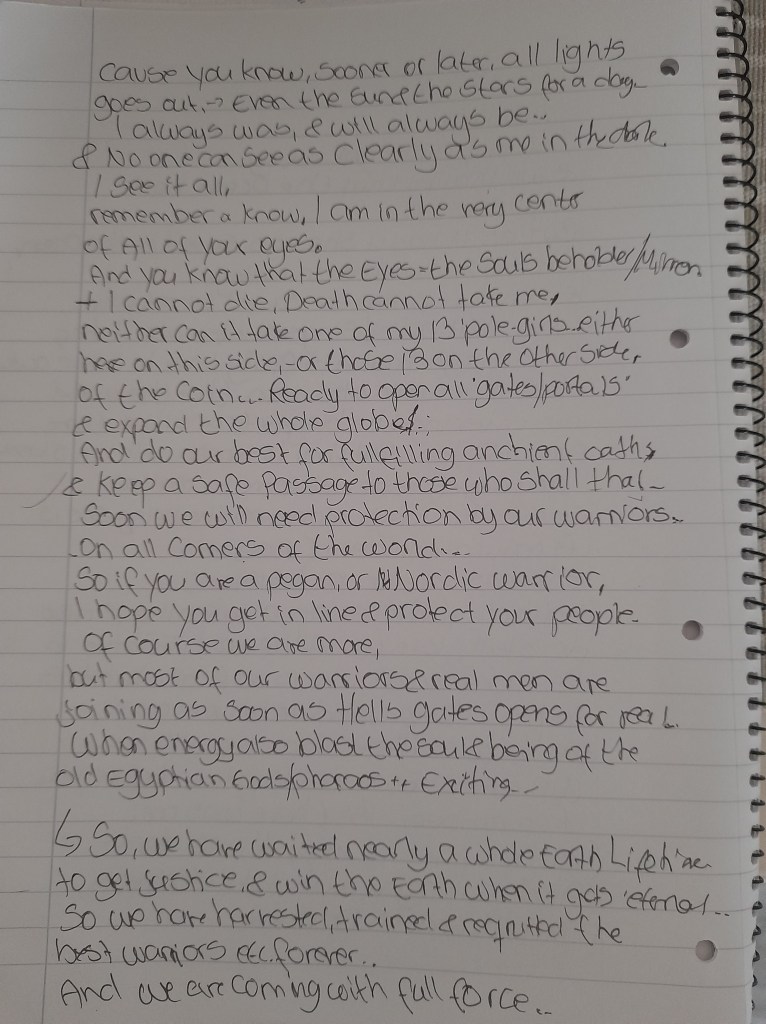 cause you know, sooner or later, all lights
goes out.→ Even the sun & the stars for a day..
I always was, & will always be..
& No one can see as clearly as me in the dark.
I see it all,
remember & know, I am in the very center
of All of your eyes.
And you know that the Eyes=the Souls beholder/Mirror
+ I cannot die, Death cannot take me,
neither can it take one of my 13 pole-girls either
here on this side,-or those 13 on the other side,
of the Coin... Ready to open all gates/portals
& expand the whole globe!..
And do our best for fullfilling anchient oaths
& keep a safe passage to those who shall that_
Soon we will need protection by our warriors..
On all Corners of the world...
So if you are a pegan, or Nordic warrior,
I hope you get in line & protect your people.
Of course we are more,
but most of our warriors & real men are
joining as soon as Hells gates opens for real.
When energy also blast the soul & being of the
old Egyptian Gods/pharaos ++ Exiting..
↳ So, we have waited nearly a whole Earth Lifetime
to get justice, & win the Earth when it gets eternal...
So we have harvested, trained & requited the
best warriors etc. forever..
And we are coming with full force..